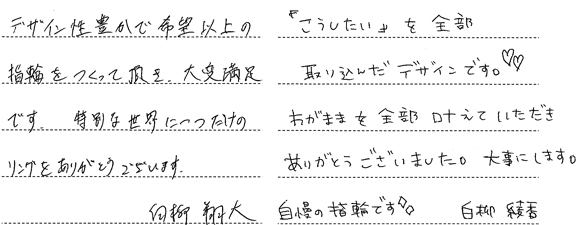 デザイン性豊かで希望以上の
指輪をつくって頂き、大変満足
です。特別な世界に一つだけの
リングをありがとうございます。
白柳 翔大
『こうしたい』を全部
取り込んだデザインです。♡♡
わがままを全部叶えていただき
ありがとうございました。大事にします。
自慢の指輪です◇◇ 白柳 綾香